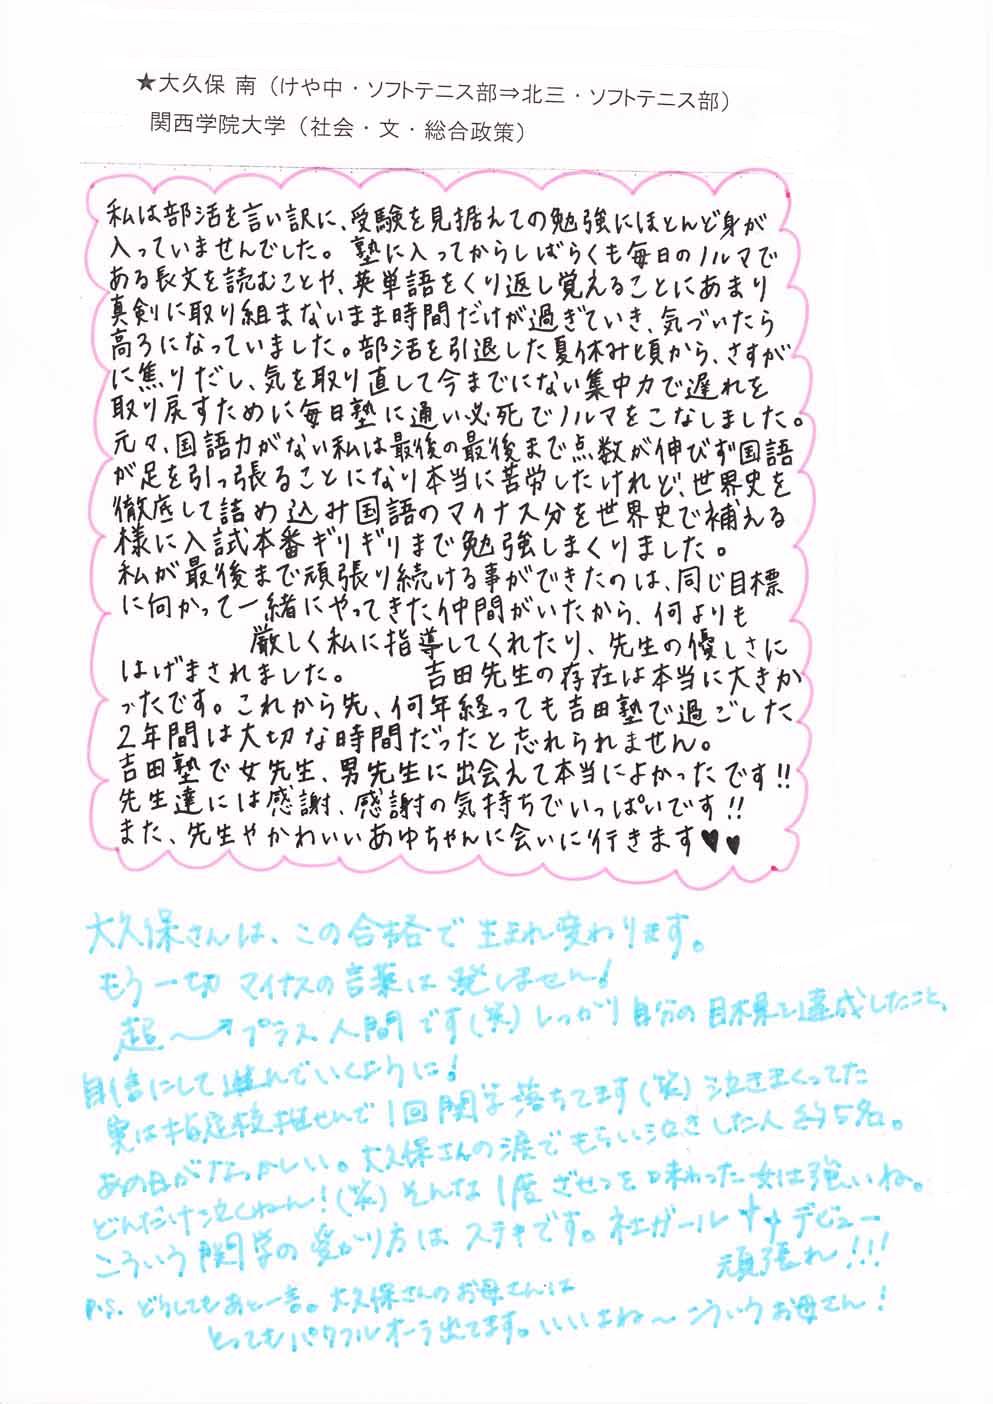 ★大久保 南（けや中・ソフトテニス部⇒北三・ソフトテニス部）
関西学院大学（社会・文・総合政策）
私は部活を言い訳に、受験を見据えての勉強にほとんど身が
入っていませんでした。塾に入ってからしばらくも毎日のノルマで
ある長文を読むことや、英単語をくり返し覚えることにあまり
真剣に取り組まないまま時間だけが過ぎていき、気づいたら
高3になっていました。部活を引退した夏休み頃から、さすが
に焦りだし、気を取り直して今までにない集中力で遅れを
取り戻すために毎日塾に通い必死でノルマをこなしました。
元々、国語力がない私は最後の最後まで点数が伸びず国語
が足を引っ張ることになり本当に苦労したけれど、世界史を
徹底して詰め込み国語のマイナス分を世界史で補える
様に入試本番ギリギリまで勉強しまくりました。
私が最後まで頑張り続ける事ができたのは、同じ目標
に向かって一緒にやってきた仲間がいたから、何よりも
厳しく私に指導してくれたり、先生の優しさに
はげまされました。 吉田先生の存在は本当に大きか
ったです。これから先、何年経っても吉田塾で過ごした
2年間は大切な時間だったと忘れられません。
吉田塾で女先生、男先生に出会えて本当によかったです!!
先生達には感謝、感謝の気持ちでいっぱいです!!
また、先生やかわいいあゆちゃんに会いに行きます♥♥
大久保さんは、この合格で生まれ変わります。
もう一切マイナスの言葉は発しません!
超〜↗プラス人間です(笑)しっかり自分の目標を達成したこと、
自信にして進んでいくように!
実は指定校推せんで1回関学落ちてます(笑)泣きまくってた
あの日がなつかしい。大久保さんの涙でもらい泣きした人約5名。
どんだけ泣くねん!(笑)そんな1度ざせつを味わった女は強いね。
こういう関学の受かり方はステキです。社ガール デビュー
頑張れ!!!
P.S. どうしてもあと一言。大久保さんのお母さんは
とってもパワフルオーラ出てます。いいよね〜こういうお母さん!